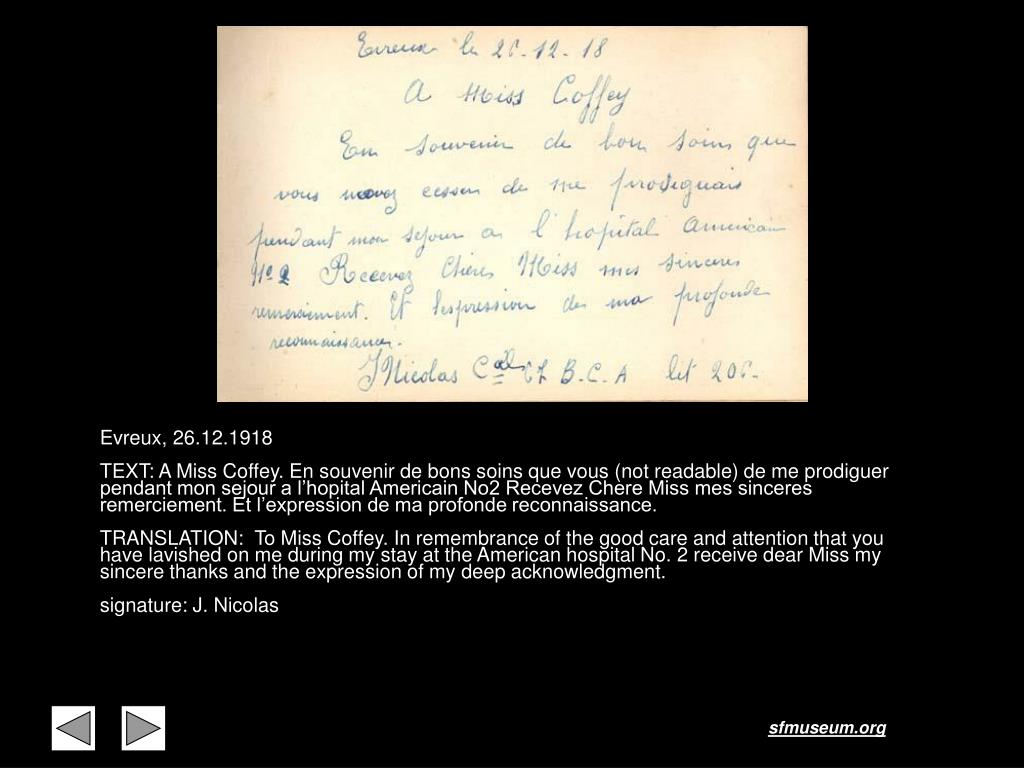 Evreux le 26-12-18
A Miss Coffey
En souvenir de bons soins que
vous cesser de me prodiguais
pendant mon sejour a l'hopital Americain
No 2 Recevez Chère Miss mes sinceres
remerciement. Et lespression de ma profonde
reconnaissance.
JNicolas B.C.A lit 206-
Evreux, 26.12.1918
TEXT: A Miss Coffey. En souvenir de bons soins que vous (not readable) de me prodiguer
pendant mon sejour a l’hopital Americain No2 Recevez Chere Miss mes sinceres
remerciement. Et l’expression de ma profonde reconnaissance.
TRANSLATION: To Miss Coffey. In remembrance of the good care and attention that you
have lavished on me during my stay at the American hospital No. 2 receive dear Miss my
sincere thanks and the expression of my deep acknowledgment.
signature: J. Nicolas
sfmuseum.org